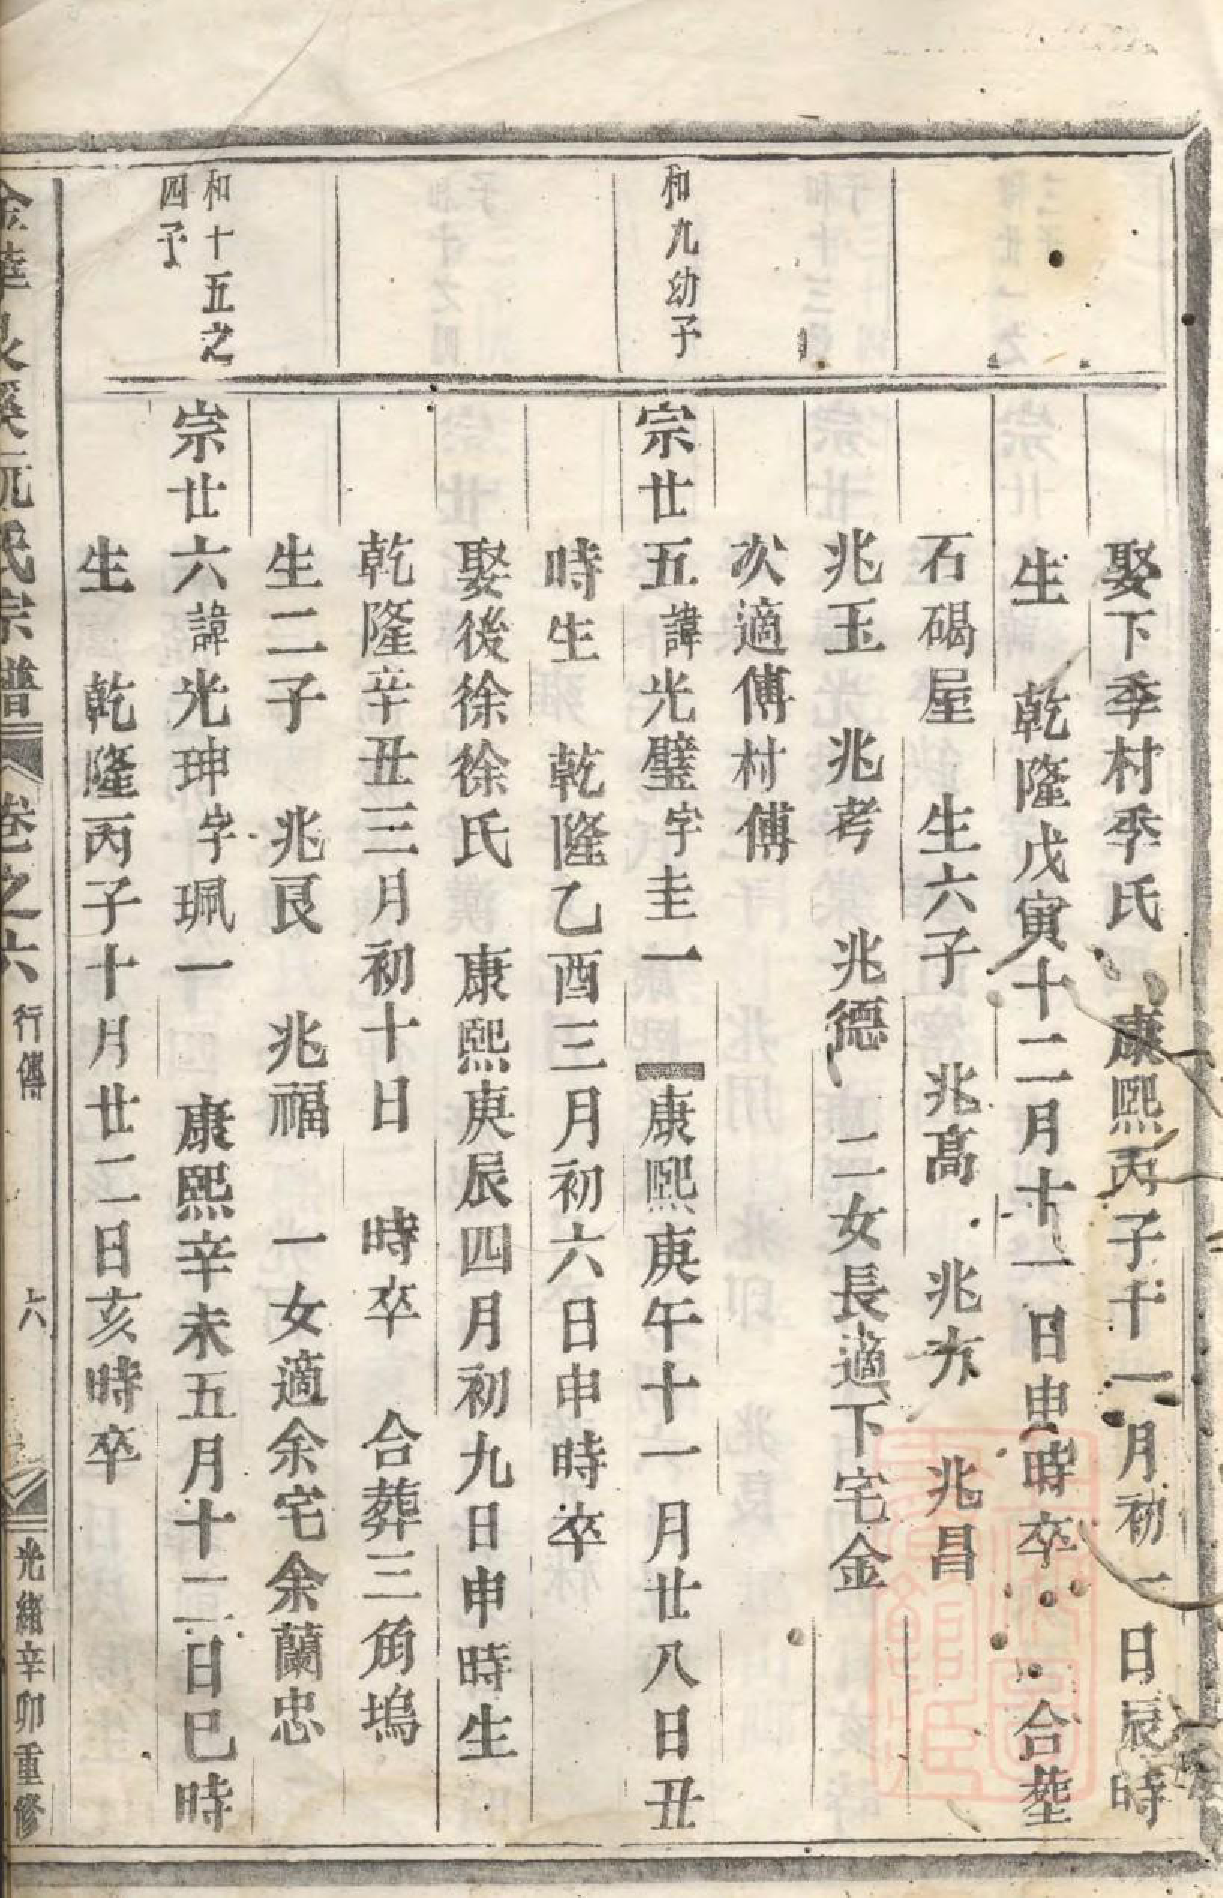 娶下季村季氏 康熙丙子十一月初一日辰時
生 乾隆戊寅十二月十一日申時卒 合葬
石碣屋 生六子 兆高 兆亦 兆昌
兆玉 兆考 兆德 二女長適下宅金
次適傅村傅
和九幼子
宗廿五諱光璧字圭一 康熙庚午十一月廿八日丑
時生 乾隆乙酉三月初六日申時卒
娶後徐徐氏 康熙庚辰四月初九日申時生
乾隆辛丑三月初十日 時卒 合葬三角塢
生二子 兆艮 兆福 一女適余宅余蘭忠
和十五之
四子
宗廿六諱光珅字珮一 康熙辛未五月十二日巳時
生 乾隆丙子十月廿二日亥時卒
金華 溪阮氏宗譜 卷之六 行傳 六 光緒辛卯重修